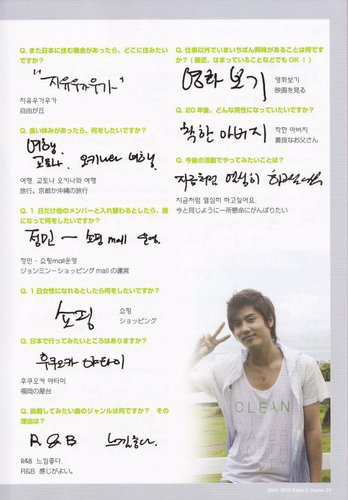 Q. また日本に住む機会があったら、どこに住みたい
ですか?
"자유우가우가"
지유우가우가
自由が丘
Q. 長い休みがあったら、何をしたいですか?
여행.
교토나 오키나와 여행
여행. 교토나 오키나와 여행
旅行。京都か沖縄の旅行
Q. 1日だけ他のメンバーと入れ替わるとしたら、誰
になって何をしたいですか?
정민 — 쇼핑 mall 운영
정민 - 쇼핑mall운영
ジョンミン−ショッピング mall の運営
Q. 1日女性になれるとしたら何をしたいですか?
쇼핑
쇼핑
ショッピング
Q. 日本で行ってみたいところはありますか?
후쿠오카 야타이
후쿠오카 야타이
福岡の屋台
Q. 挑戦してみたい曲のジャンルは何ですか? その
理由は?
R&B 느낌좋다.
R&B 느낌좋다.
R&B 感じがよい。
Q. 仕事以外でいまいちばん興味があることは何です
か?(最近、はまっていることなどでもOK!)
영화 보기
영화보기
映画を見る
Q. 20年後、どんな男性になっていたいですか?
착한 아버지
착한 아버지
善良なお父さん
Q. 今後の活動でやってみたいことは?
지금처럼 열심히 하고싶어요.
지금처럼 열심히 하고싶어요.
今と同じように一所懸命にがんばりたい
CLEAN
2009-2010 Triple S Japan